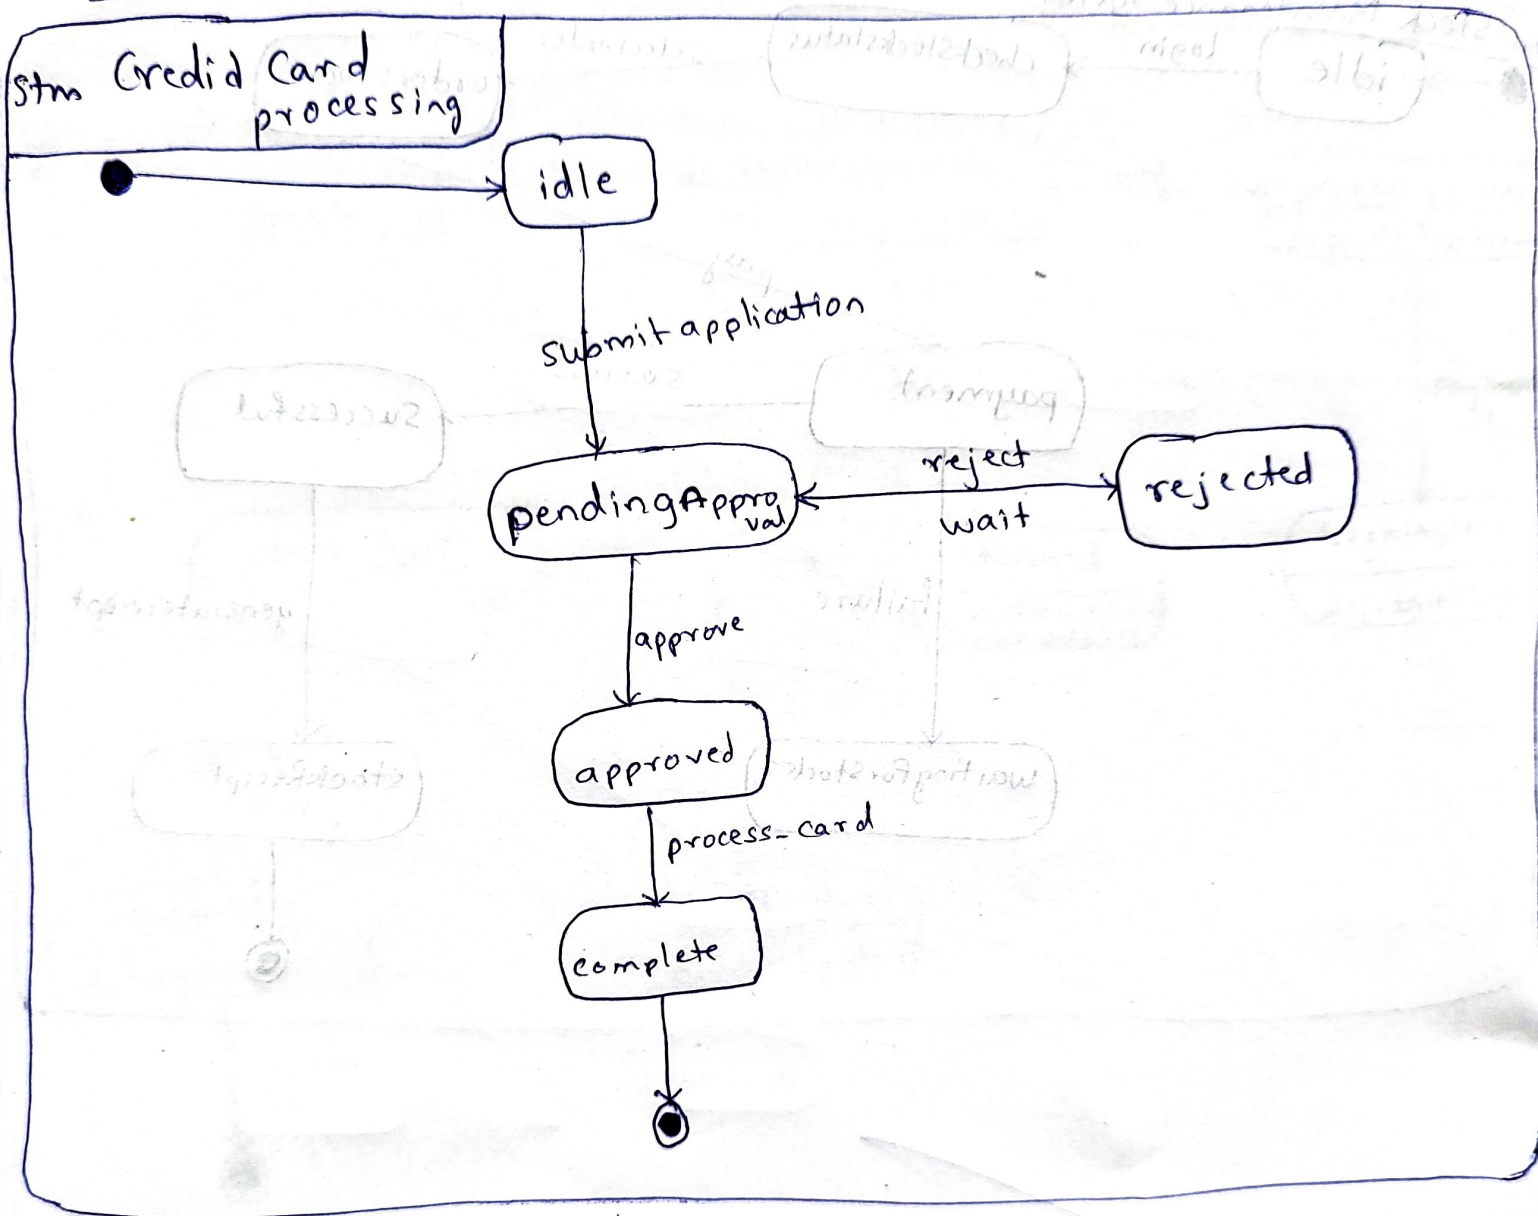 stm Credid Card
processing
idle
submit application
pendingAppro
val
reject
wait
rejected
approve
approved
process-card
complete